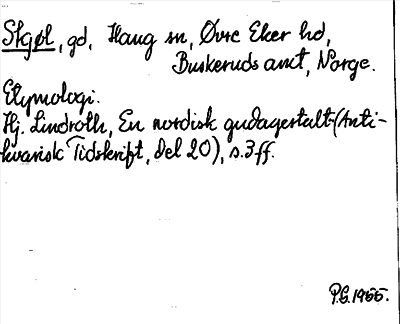 Skjøl, gd, Haug sn, Øvre Eker hd,
Buskeruds amt, Norge.
Etymologi.
Hj. Lindroth, En nordisk gudagestalt (Anti-
kvarisk Tidskrift, Del 20), s. 3 ff.
P.G. 1955.